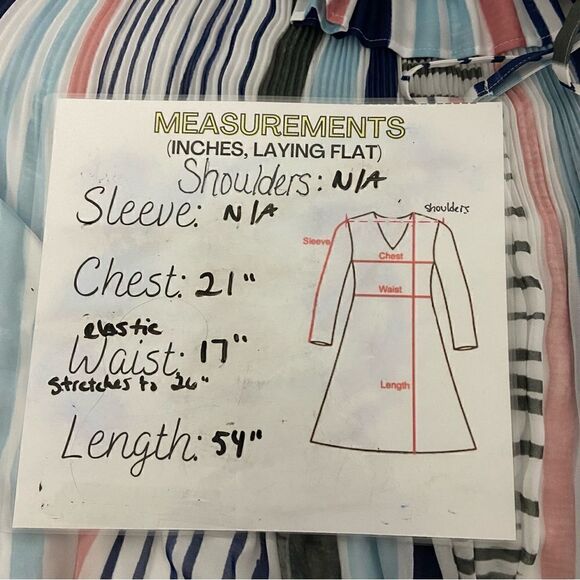 MEASUREMENTS
(INCHES, LAYING FLAT)
Shoulders: N/A
Sleeve: N/A
Chest: 21"
elastic
Waist: 17"
stretches to 26"
Length: 54"
shoulders
Sleeve
Chest
Waist
Length